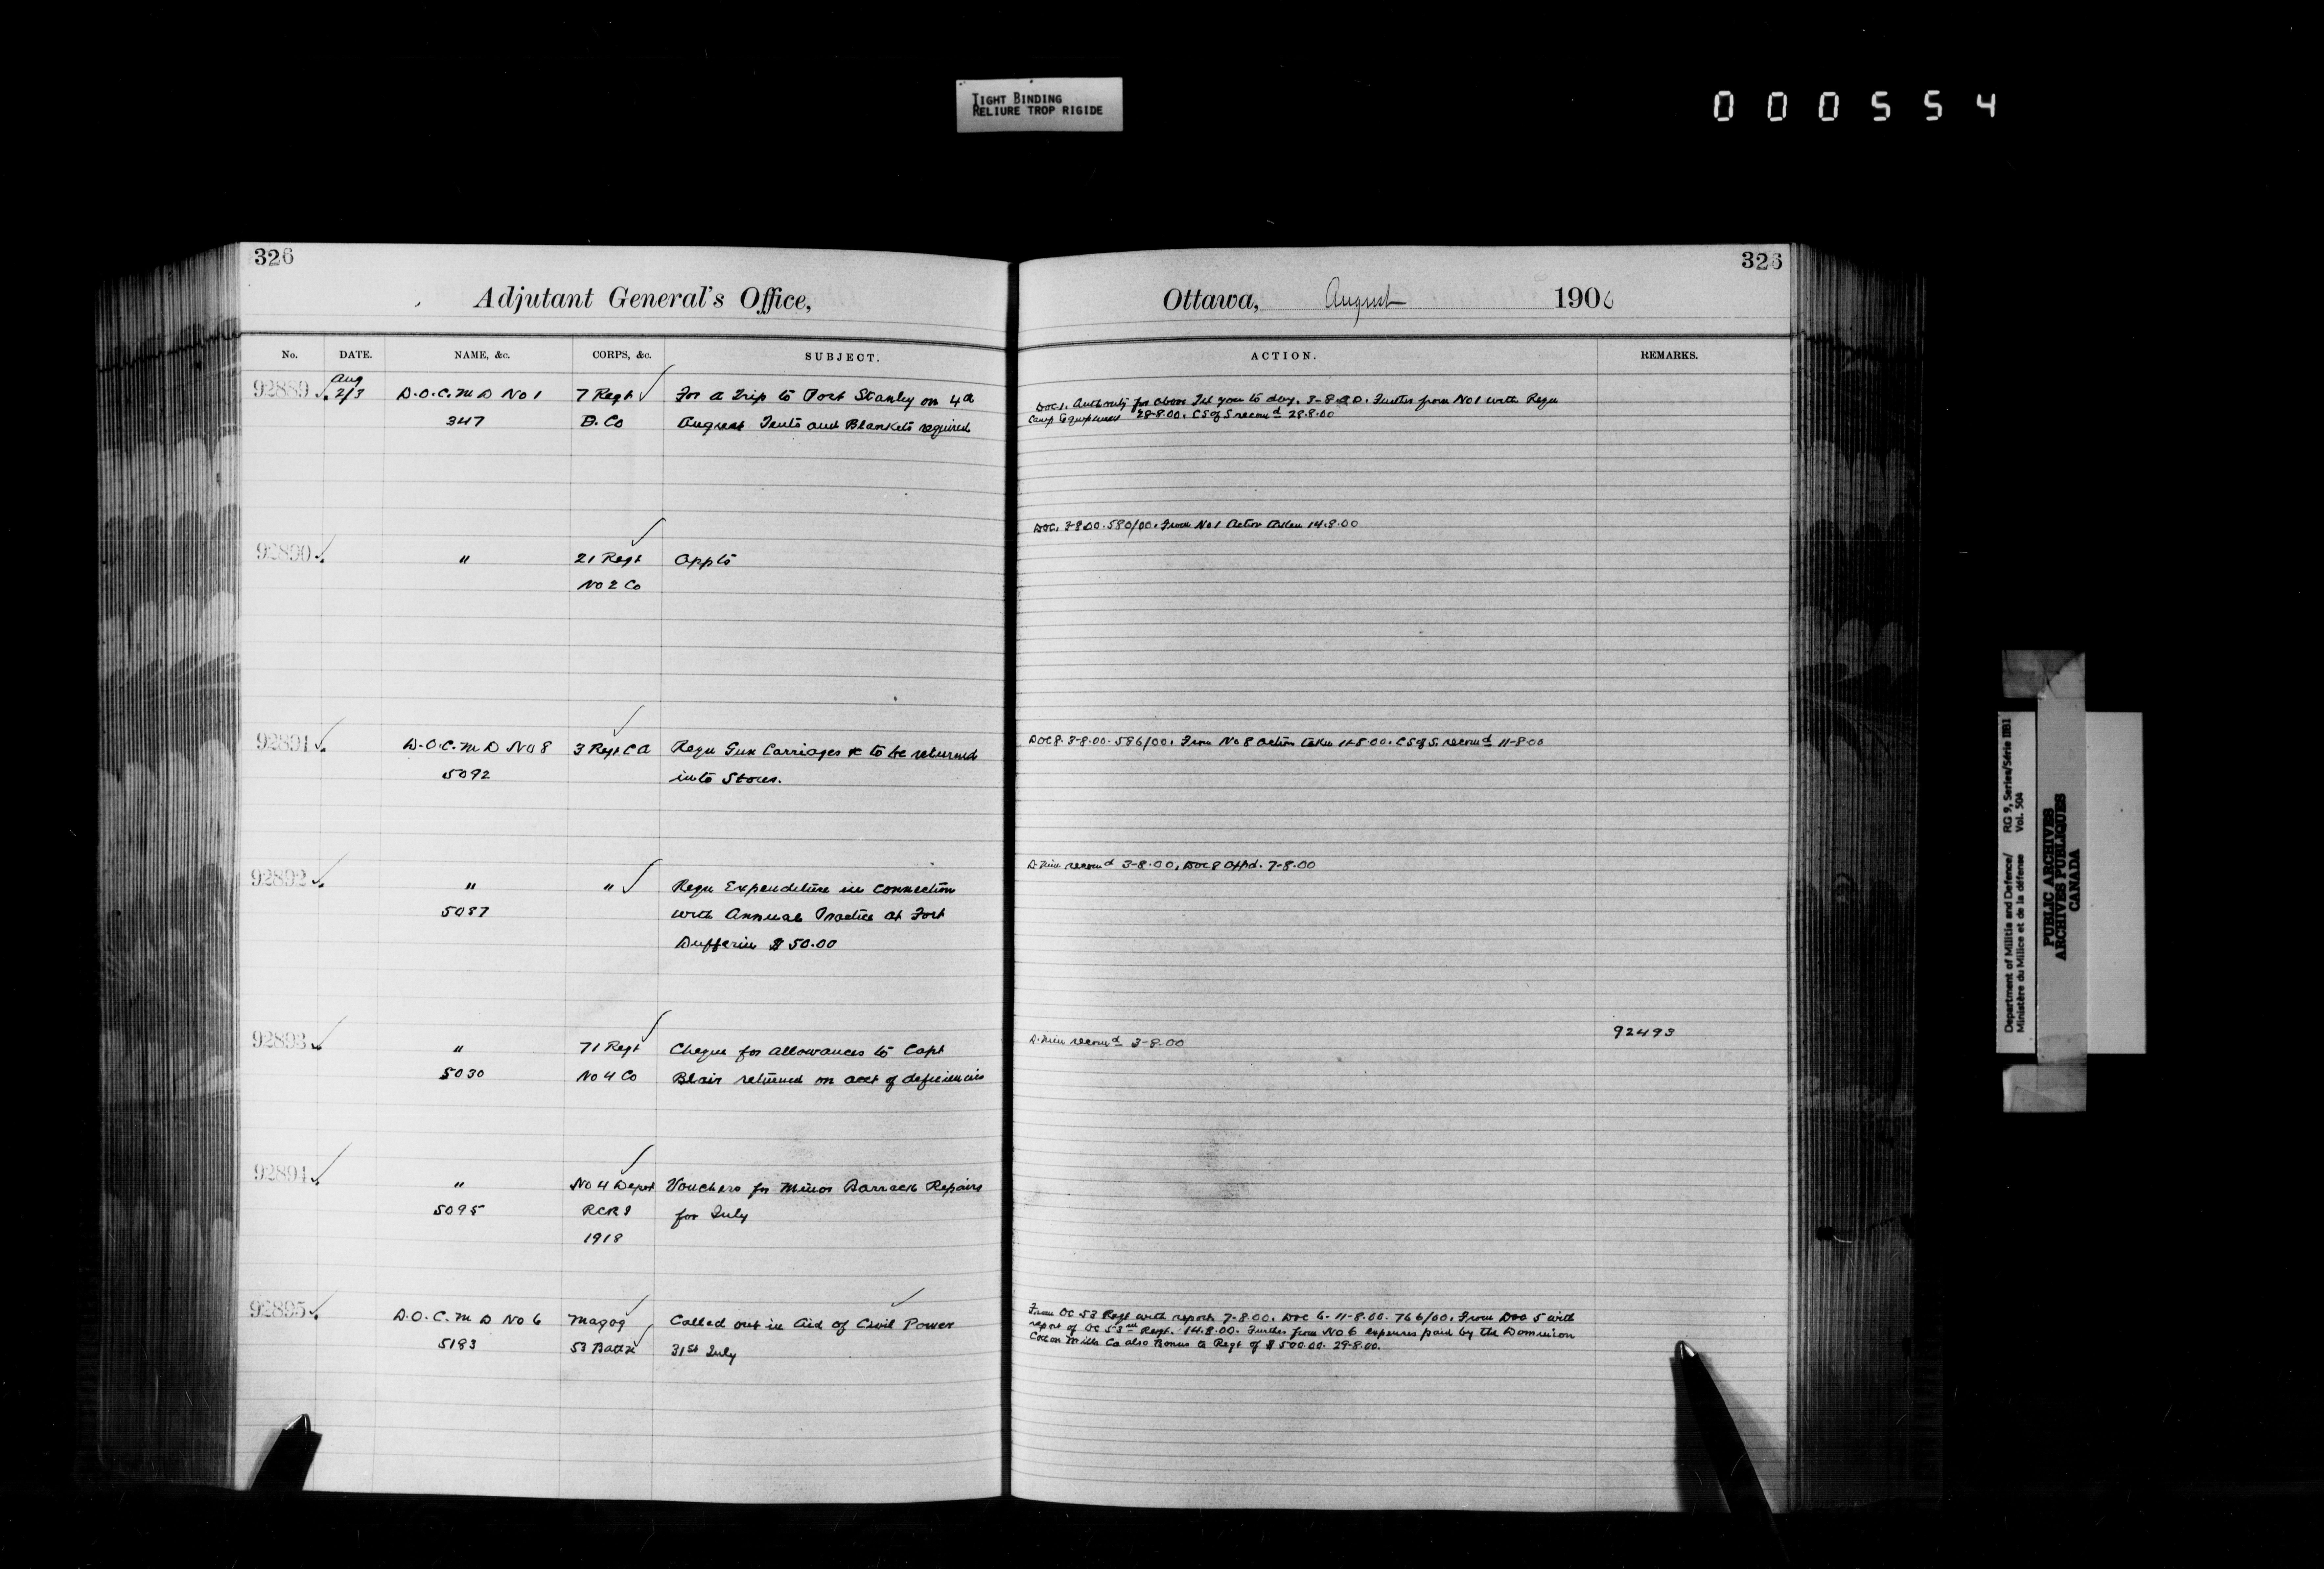 TIGHT BINDING
RELIURE TROP RIGIDE
000554
326
Adjutant General's Office,
No. DATE. NAME, &c. CORPS, &c. SUBJECT.
92889 Aug 2/3 D.O.C.M D No 1 7 Regt For a Trip to Port Stanly on 4th
347 B. Co August Tents and Blankets required
92890 " 21 Regt Appts
No 2 Co
92891 D.O.C.M D No 8 3 Regt C A Requ Gun Carriages &c to be returned
5092 into Stores.
92892 " " Requ Expenditure in connection
5087 with Annual Practice at Fort
Dufferin $50.00
92893 " 71 Regt Cheque for allowances to Capt
5030 No 4 Co Blair returned on acct of deficiencies
92894 " No 4 Depot Vouchers for Minor Barrack Repairs
5095 RCRI for July
1918
92895 D.O.C.M D No 6 Magog Called out in Aid of Civil Power
5183 53 Battn 31st July
326
Ottawa, August 1900
ACTION. REMARKS.
DOC 1. Authority for above Tel you to day. 3-8-00. Further from No 1 with Requ
Camp Equipment 28-8-00. C S of S recomd 28.8.00
DOC. 3-8.00. 580/00. From No 1 Action taken 14.8.00
DOC 8. 3-8-00. 586/00. From No 8 action taken 11-8-00. C S of S. recomd 11-8-00
D. Min recomd 3-8-00, DOC 8 Appd. 7-8-00
D. Min recomd 3-8-00 92493
From OC 53 Regt with report 7-8.00. DOC 6. 11-8.00. 766/00. From DOC 5 with
report of OC 53rd Regt. 14.8.00. Further from No 6 expenses paid by the Dominion
Cotton Mills Co also Bonus to Regt of $500.00. 29-8.00.
Department of Militia and Defence/ RG 9, Series/Série IIB1
Ministère du Milice et de la défense Vol. 504
PUBLIC ARCHIVES
ARCHIVES PUBLIQUES
CANADA